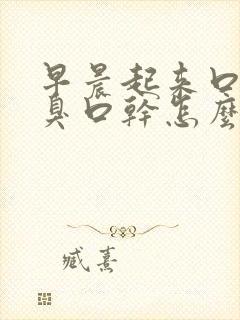 早晨起来口
臭口幹怎麽
臧熹